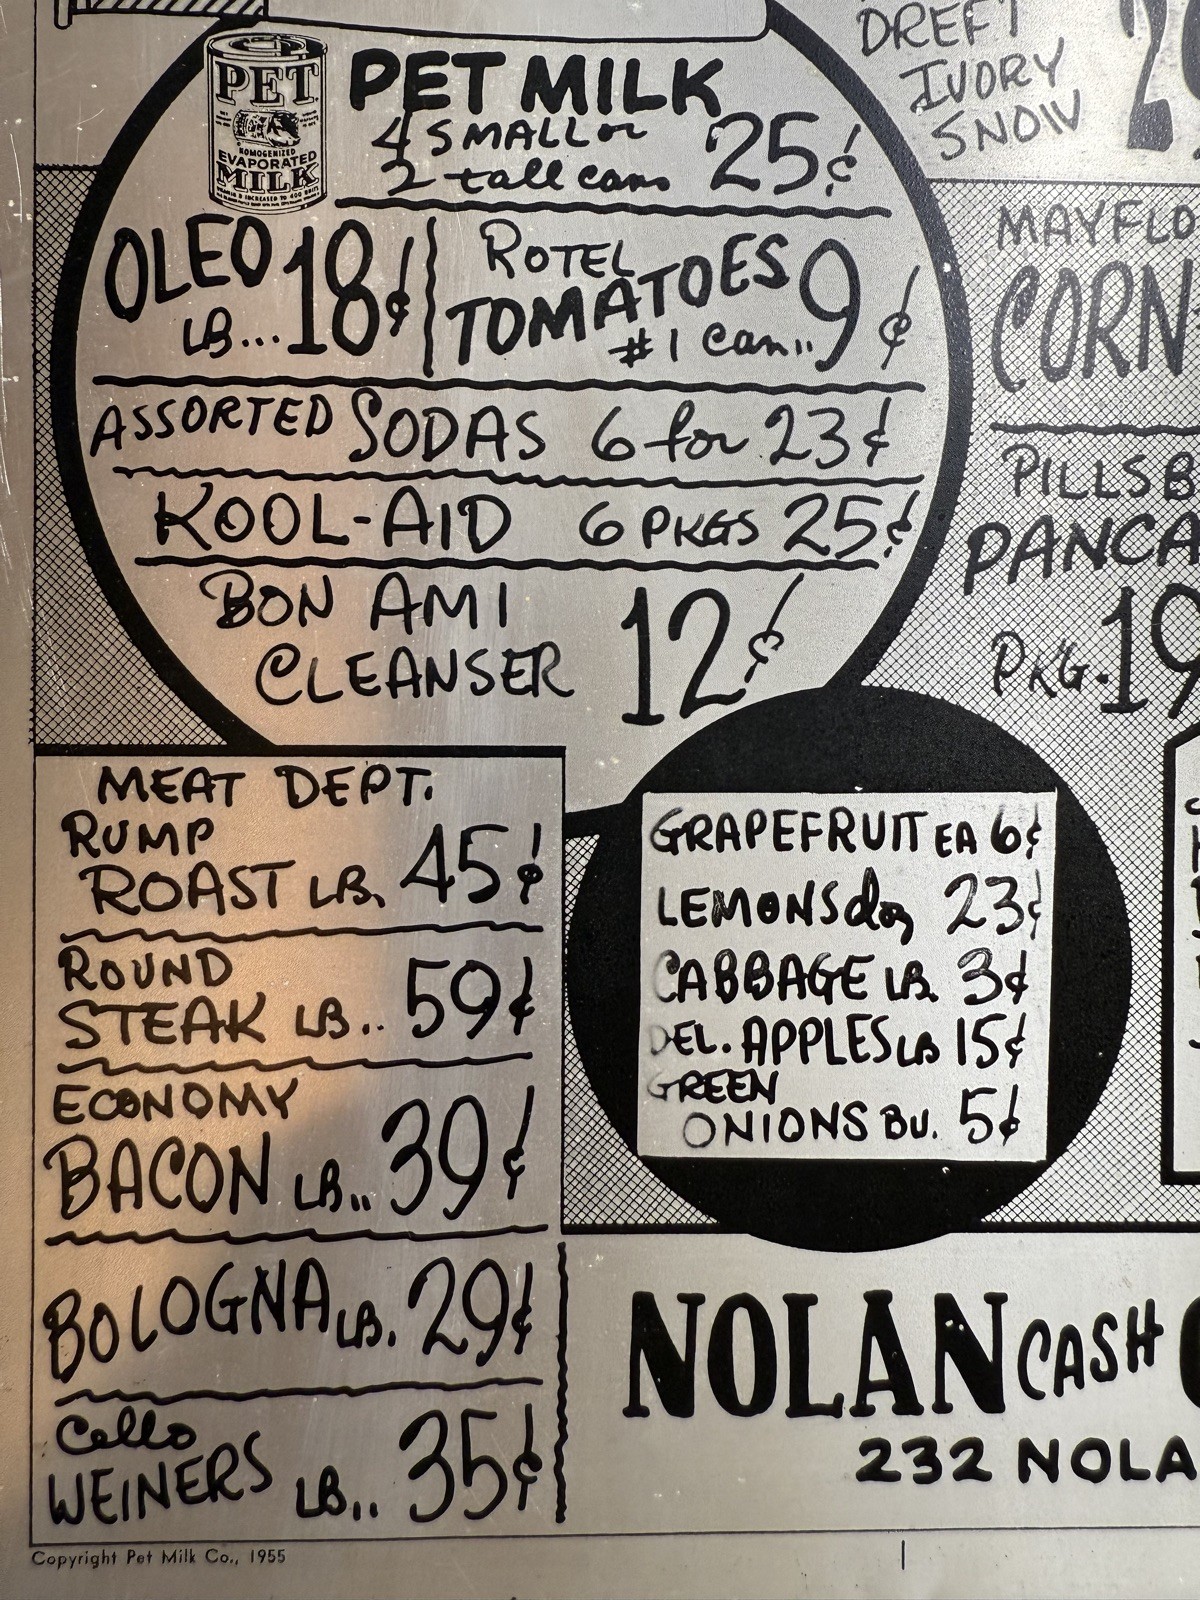 PET
HOMOGENIZED
EVAPORATED
MILK
PET MILK
4 SMALL or
2 tall cans 25¢
OLEO
LB... 18¢
ROTEL
TOMATOES
#1 Can.. 9¢
ASSORTED SODAS 6 for 23¢
KOOL-AID 6 PKGS 25¢
BON AMI
CLEANSER 12¢
DREFT
IVORY
SNOW
MAYFLO
CORN
PILLSB
PANCA
PKG. 19
MEAT DEPT.
RUMP
ROAST LB. 45¢
ROUND
STEAK LB.. 59¢
ECONOMY
BACON LB.. 39¢
BOLOGNA LB. 29¢
Cello
WEINERS LB.. 35¢
GRAPEFRUIT EA 6¢
LEMONS doz 23¢
CABBAGE LB. 3¢
DEL. APPLES LB 15¢
GREEN
ONIONS BU. 5¢
NOLAN CASH
232 NOLA
Copyright Pet Milk Co., 1955